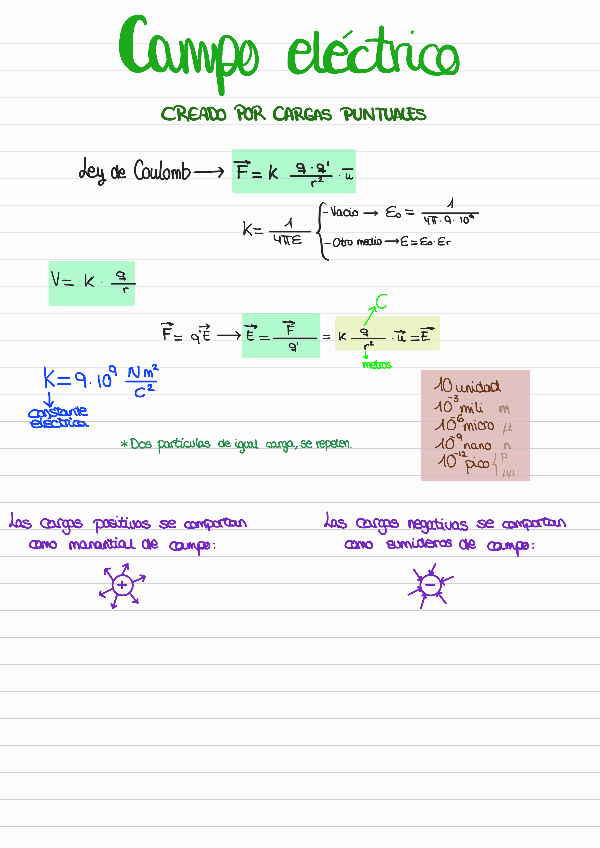 Campo eléctrico
CREADO POR CARGAS PUNTUALES
Ley de Coulomb → F⃗ = K q·q' / r² · u⃗
K = 1 / 4πε { - Vacío → ε₀ = 1 / 4π·9·10⁹
- Otro medio → ε = ε₀·εr
V = K · q / r
C
F⃗ = q'E⃗ → E⃗ = F⃗ / q' = K q / r² · u⃗ = E⃗
metros
K = 9·10⁹ N m² / C²
constante
eléctrica
10 unidad
10⁻³ mili m
10⁻⁶ micro μ
10⁻⁹ nano n
10⁻¹² pico { p
μμ
* Dos partículas de igual carga, se repelen.
Las cargas positivas se comportan
como manantial de campo:
+
Las cargas negativas se comportan
como sumideros de campo:
−